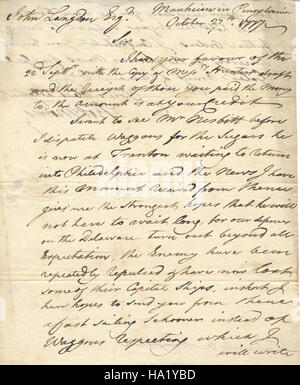 John Langdon Esqr. Manheim in Pensylvania
October 27th 1777
Sir
I have your favour of the
22 Septr. with the Copy of Messrs Hunter drafts
and the Receipt of those you paid the Money
to, the Amount is at your Credit
I want to see Mr Nesbitt before
I dispatch Waggons for the Sugars he
is now at Trenton waiting to return
into Philadelphia and the News I have
this moment received from thence
gives me the Strongest hopes that he will
not have to wait long for our defences
on the Delaware turn out beyond all
Expectation, the Enemy have been
repeatedly repulsed & have now lost
some of their Capital Ships, in short I
have hopes to send you from thence
a fast sailing Schooner instead of
Waggons respecting which I
will write
alamy
HA1YBD